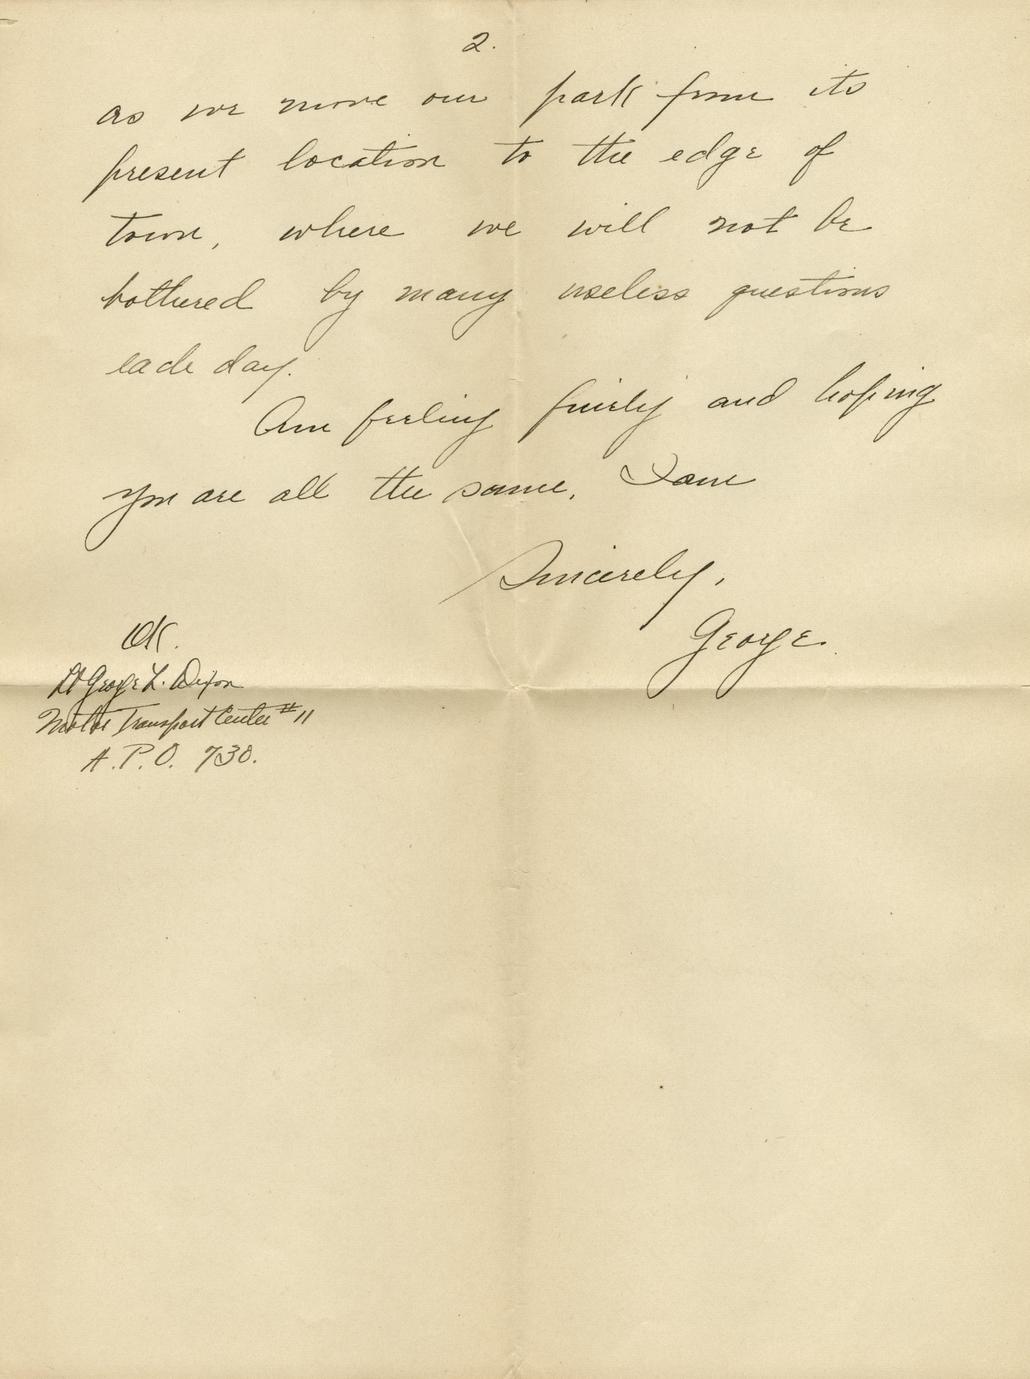 2.
as we move our park from its
present location to the edge of
town, where we will not be
bothered by many useless questions
each day.
Am feeling finely and hoping
you are all the same, I am
Sincerely,
George.
OK.
Lt George L. Dixon
Motor Transport Center #11
A.P.O. 730.